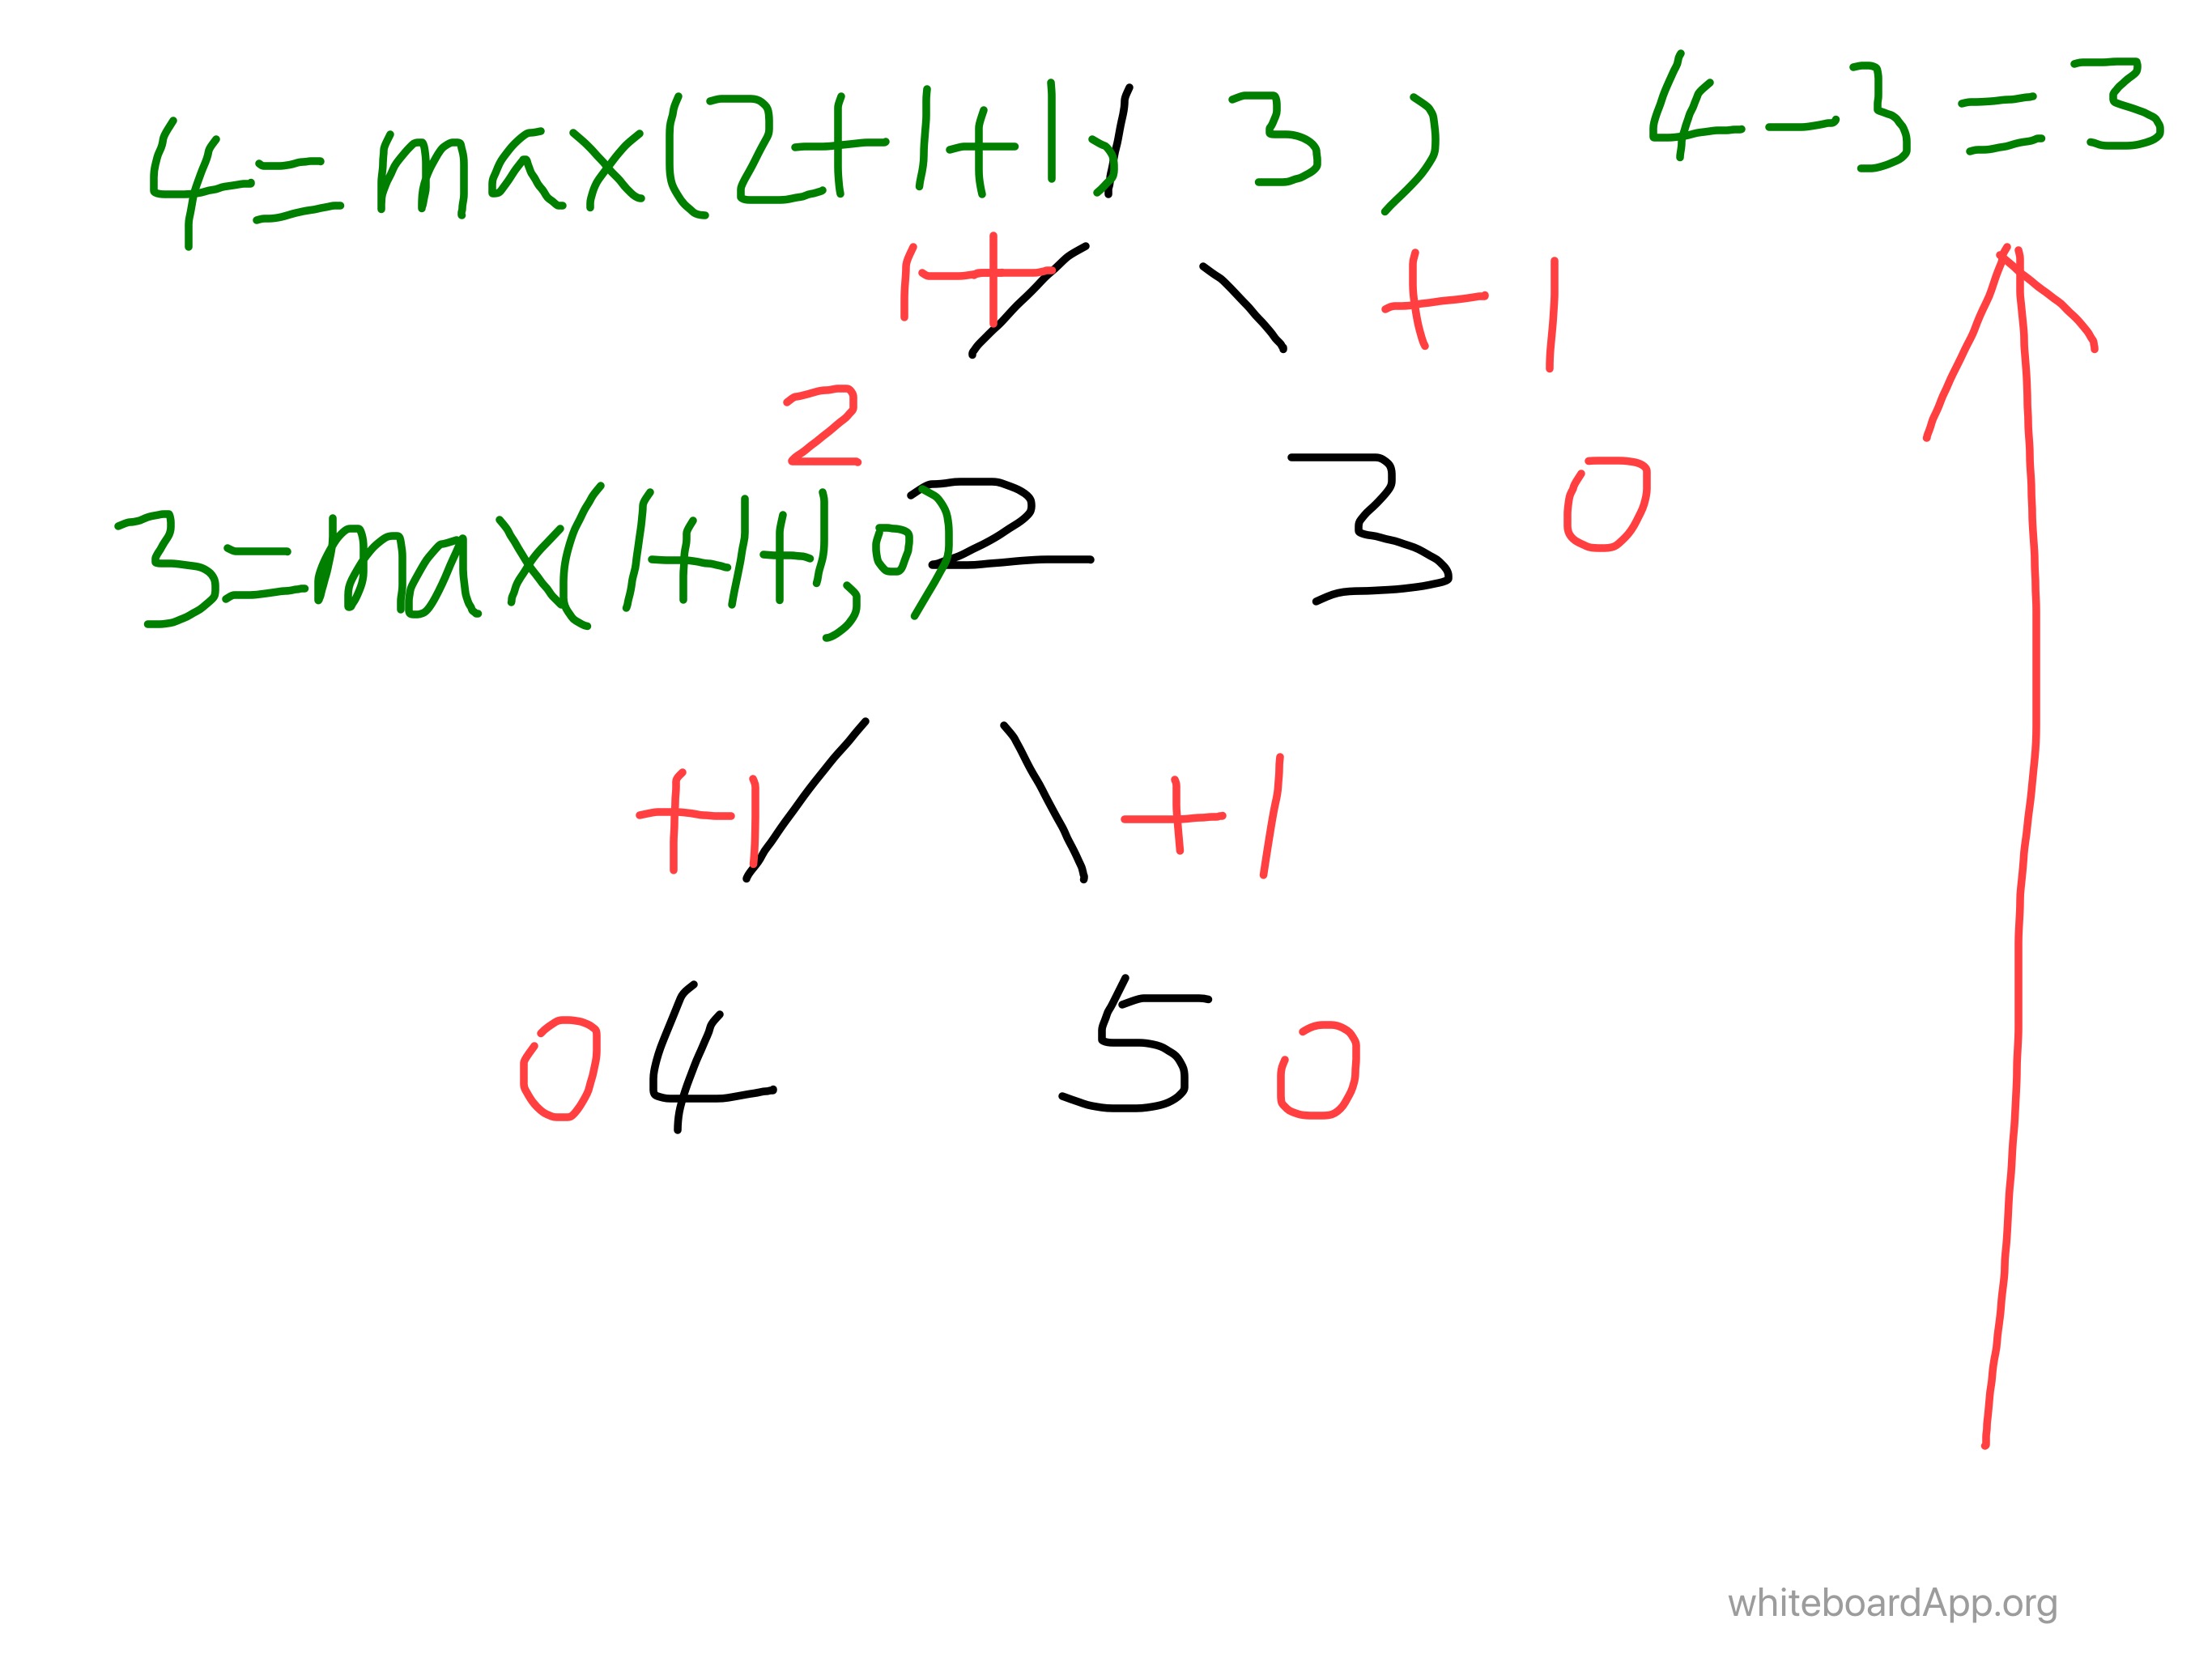 4=max(2+1+1, 3)
4-3=3
1
1+
+1
2
3=max(1+1+1,0)
2
3
0
+1
+1
0
4
5
0
whiteboardApp.org